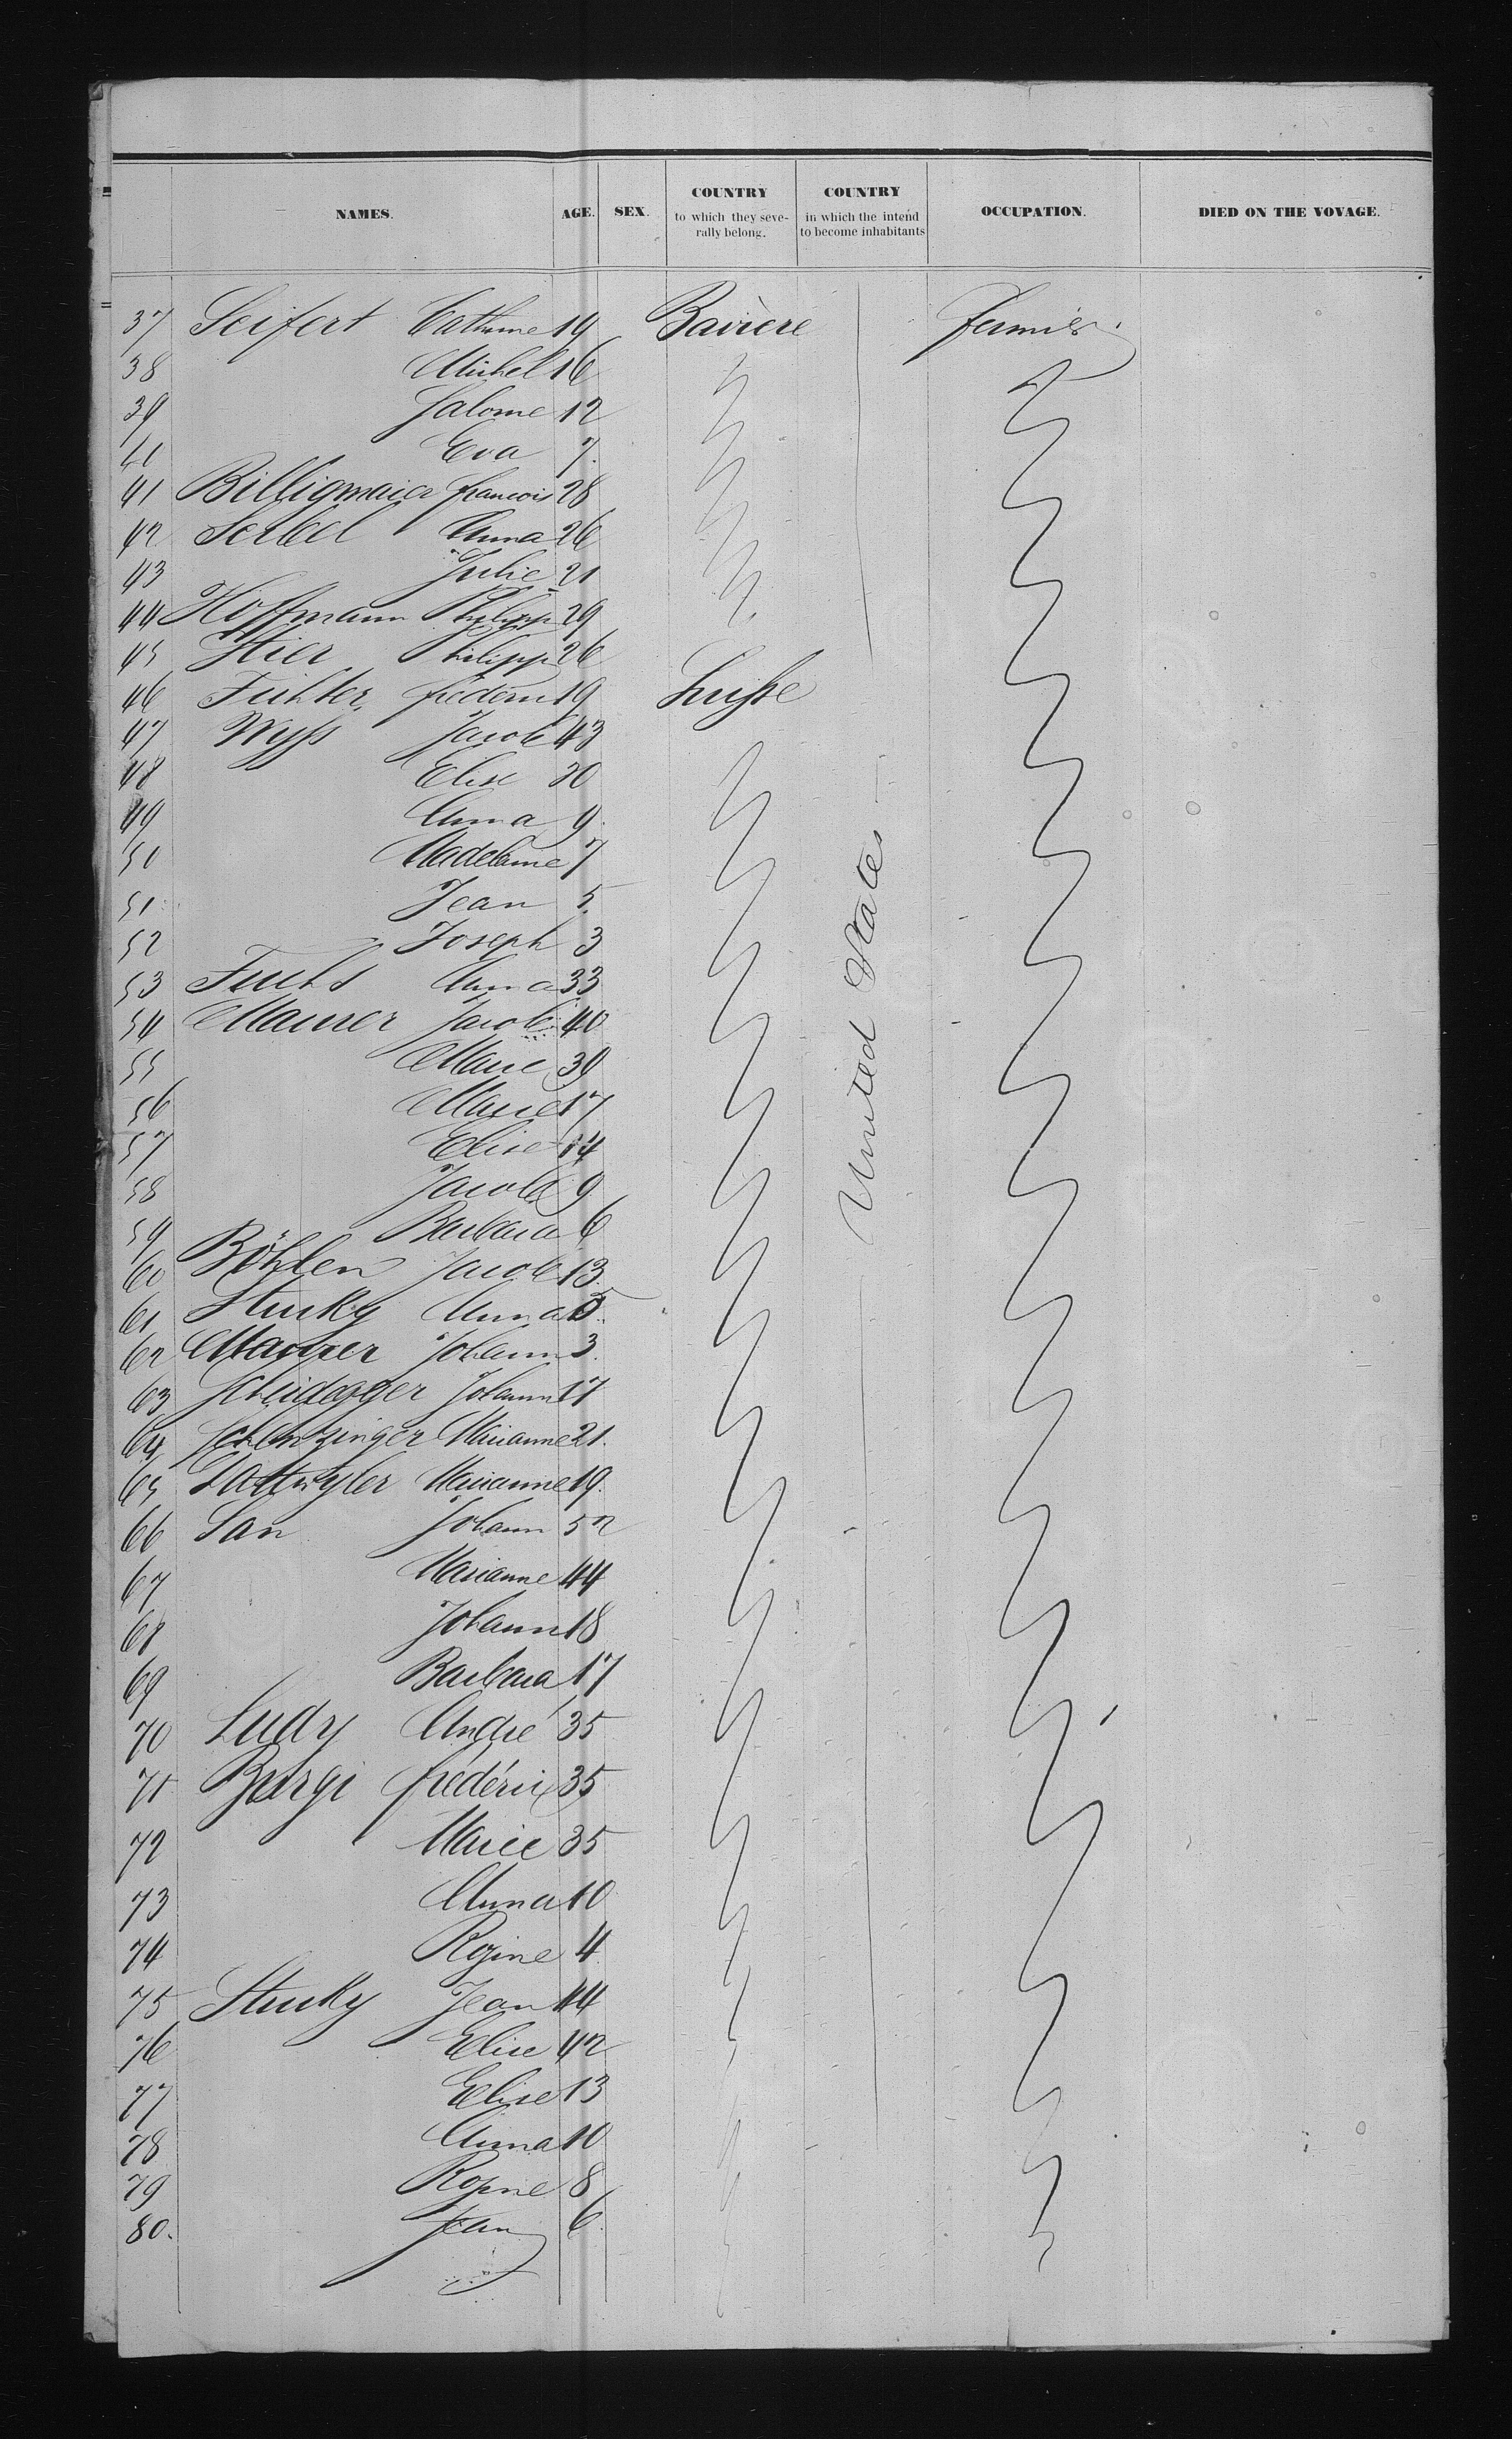 NAMES. AGE. SEX. COUNTRY to which they seve- rally belong. COUNTRY in which the intend to become inhabitants OCCUPATION. DIED ON THE VOYAGE.
37 Seifert Cathrine 19 Bavière fermier
38 Michel 16
39 Salome 12
40 Eva 7.
41 Billigmaier francois 28
42 Seibel Anna 26
43 Julie 21
44 Hoffmann Philipp 29
45 Stier Philipp 26
46 Fichter frederic 19 Suisse
47 Wyss Jacob 43
48 Elise 30
49 Anna 9.
50 Madelaine 7
51 Jean 5.
52 Joseph 3
53 Fuchs Anna 33
54 Maurer Jacob 40
55 Marie 39
56 Marie 17
57 Elise 14
58 Jacob 9
59 Barbara 6
60 Böhlen Jacob 13.
61 Stucky Anna
62 Maurer Johann 3.
63 Scheidegger Johann 17
64 Marianne 21.
65 Marianne 19.
66 San Johann 52
67 Marianne 44
68 Johann 18
69 Barbara 17
70 Ludy André 35
71 Burgi frédéric 35
72 Marie 35
73 Anna 10
74 Rosine 4
75 Stucky Jean 44
76 Elise 42
77 Elise 13
78 Anna 10
79 Rosine 8
80. Jean 6.
United States